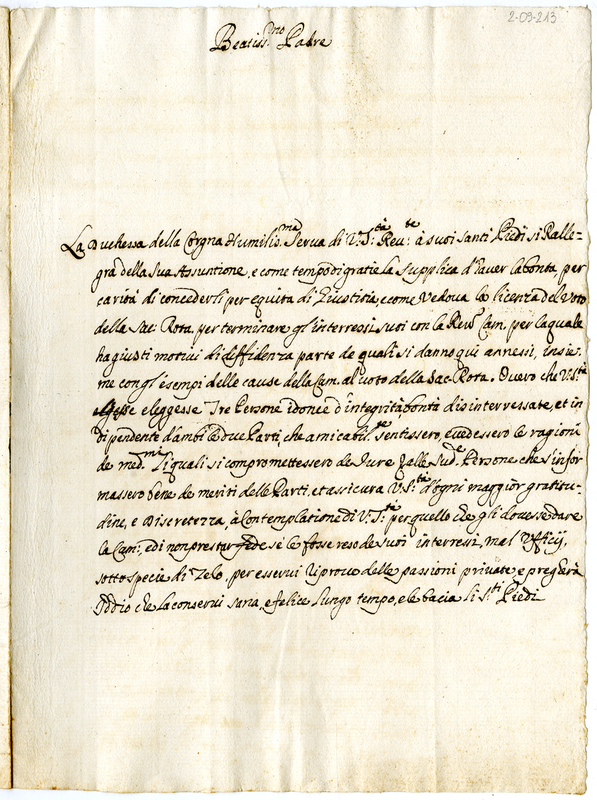 2-09-213
Beatiss.mo Padre
La Duchessa della Corgna Humilis.ma Serva di V. S.tà Reu.te à suoi santi Piedi si Ralle-
gra della sua Assuntione, e come tempo di gratie la supplica d'haver la bontà, per
carità di concederli per equità di Giustitia, e come Vedova la licenza del Voto
della Sac. Rota, per terminare gl'interressi suoi con la Reu. Cam. per la quale
ha giusti motivi di diffidenza parte de quali si danno qui annessi, insie-
me con gl'esempi delle cause della Cam. al voto della Sac. Rota. Overo che V. S.tà
eleggesse Tre Persone idonee d'integrità, bontà disinterressate, et in
dipendente d'ambi le due Parti, che amicabil.te sentissero, e vedessero le ragioni
de med.mi li quali si compromettessero de Iure dalle Sud.e Persone che s'infor
massero bene de meriti delle Parti, et assicura V. S.tà d'ogni maggior gratitu-
dine, e Discretezza, à Contemplatione di V. S.tà per quello che gli dovesse dare
la Cam., e di non prestar fede se le fosse reso de suoi interressi, mal Ufficij,
sotto specie di Zelo, per esservi riprove delle passioni private, e pregherà
Iddio che la conservi sana, e felice lungo tempo, e le bacia li S.ti Piedi